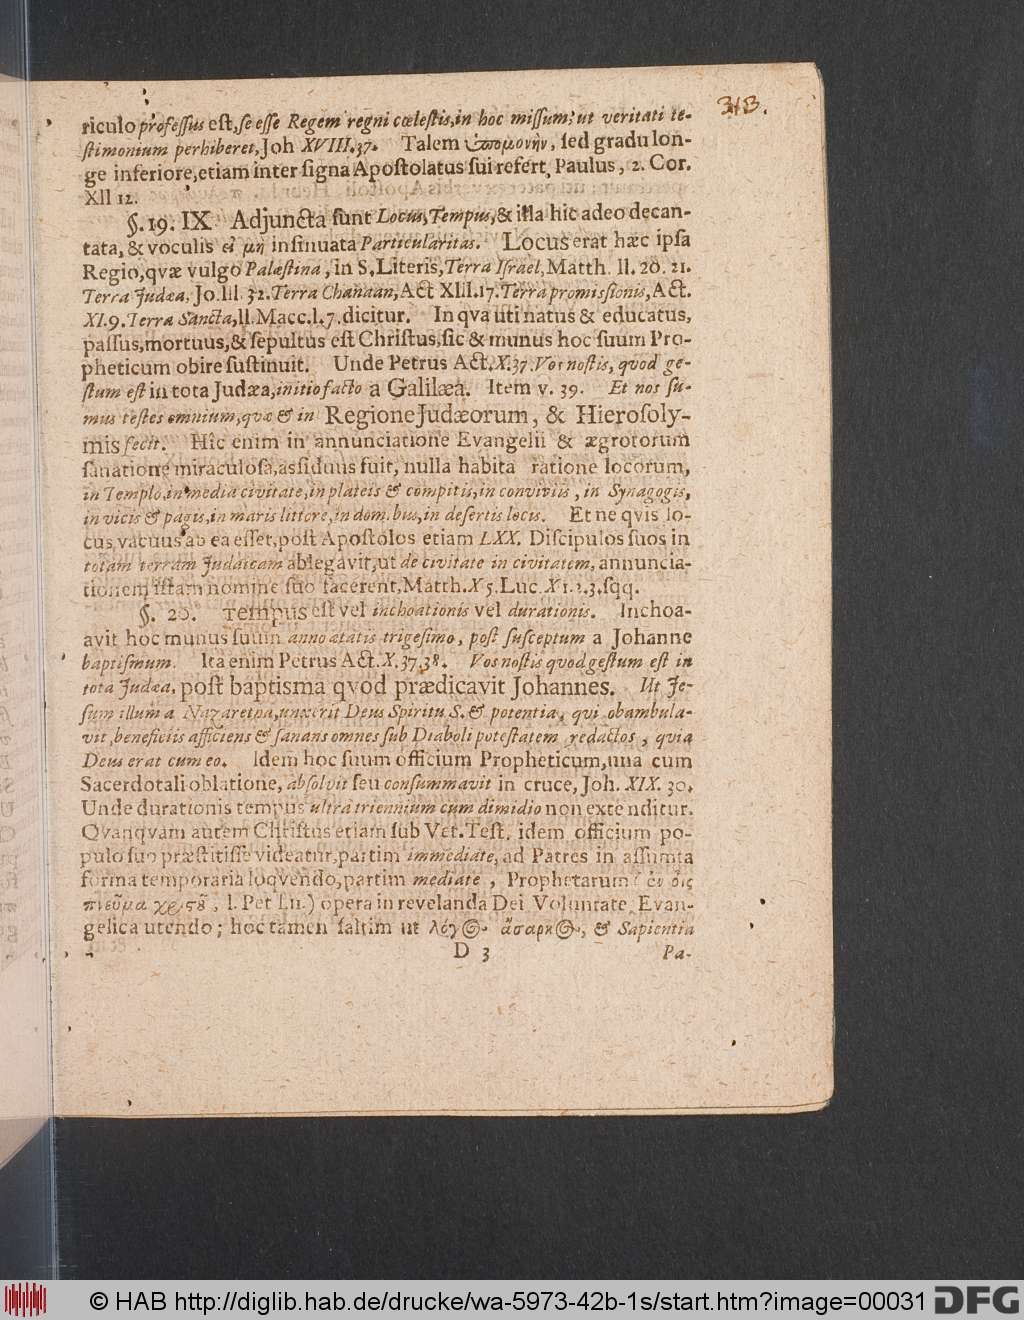 343.
riculo professus est, se esse Regem regni cœlestis, in hoc missum, ut veritati te-
stimonium perhiberet, Joh XVIII. 37. Talem ὑπομονὴν, sed gradu lon-
ge inferiore, etiam inter signa Apostolatus sui refert Paulus, 2. Cor.
XII 12.
§. 19. IX Adjuncta sunt Locus, Tempus, & illa hic adeo decan-
tata, & voculis εἰ μὴ insinuata Particularitas. Locus erat hæc ipsa
Regio, qvæ vulgo Palæstina, in S. Literis, Terra Israel, Matth. II. 20. 21.
Terra Judæa, Jo. III. 32. Terra Chanaan, Act XIII. 17. Terra promissionis, Act.
XI. 9. Terra Sancta, II. Macc. I. 7. dicitur. In qva uti natus & educatus,
passus, mortuus, & sepultus est Christus, sic & munus hoc suum Pro-
pheticum obire sustinuit. Unde Petrus Act. X. 37. Vos nostis, qvod ge-
stum est in tota Judæa, initio facto a Galilæa. Item v. 39. Et nos su-
mus testes omnium, qvæ & in Regione Judæorum, & Hierosoly-
mis fecit. Hic enim in annunciatione Evangelii & ægrotorum
sanatione miraculosa, assiduus fuit, nulla habita ratione locorum,
in Templo, in media civitate, in plateis & compitis, in conviviis, in Synagogis,
in vicis & pagis, in maris littore, in domibus, in desertis locis. Et ne qvis lo-
cus vacuus ab ea esset, post Apostolos etiam LXX. Discipulos suos in
totam terram Judaicam ablegavit, ut de civitate in civitatem, annuncia-
tionem istam nomine suo facerent, Matth. X 5. Luc. X 1. 2. 3. sqq.
§. 20. Tempus est vel inchoationis vel durationis. Inchoa-
avit hoc munus suum anno ætatis trigesimo, post susceptum a Johanne
baptismum. Ita enim Petrus Act. X. 37. 38. Vos nostis quod gestum est in
tota Judæa, post baptisma qvod prædicavit Johannes. Ut Je-
sum illum a Nazaretha, unxerit Deus Spiritu S. & potentia, qui obambula-
vit, beneficiis afficiens & sanans omnes sub Diaboli potestatem redactos, qvia
Deus erat cum eo. Idem hoc suum officium Propheticum, una cum
Sacerdotali oblatione, absolvit seu consummavit in cruce, Joh. XIX. 30.
Unde durationis tempus ultra triennium cum dimidio non extenditur.
Qvanqvam autem Christus etiam sub Vet. Test. idem officium po-
pulo suo præstitisse videatur, partim immediate, ad Patres in assumta
forma temporaria loqvendo, partim mediate, Prophetarum (ἐν οἷς
πνεῦμα χριστοῦ, I. Pet I. 11.) opera in revelanda Dei Voluntate Evan-
gelica utendo; hoc tamen saltim ut λόγος ἄσαρκος, & Sapientia
D 3 Pa-
© HAB http://diglib.hab.de/drucke/wa-5973-42b-1s/start.htm?image=00031
DFG